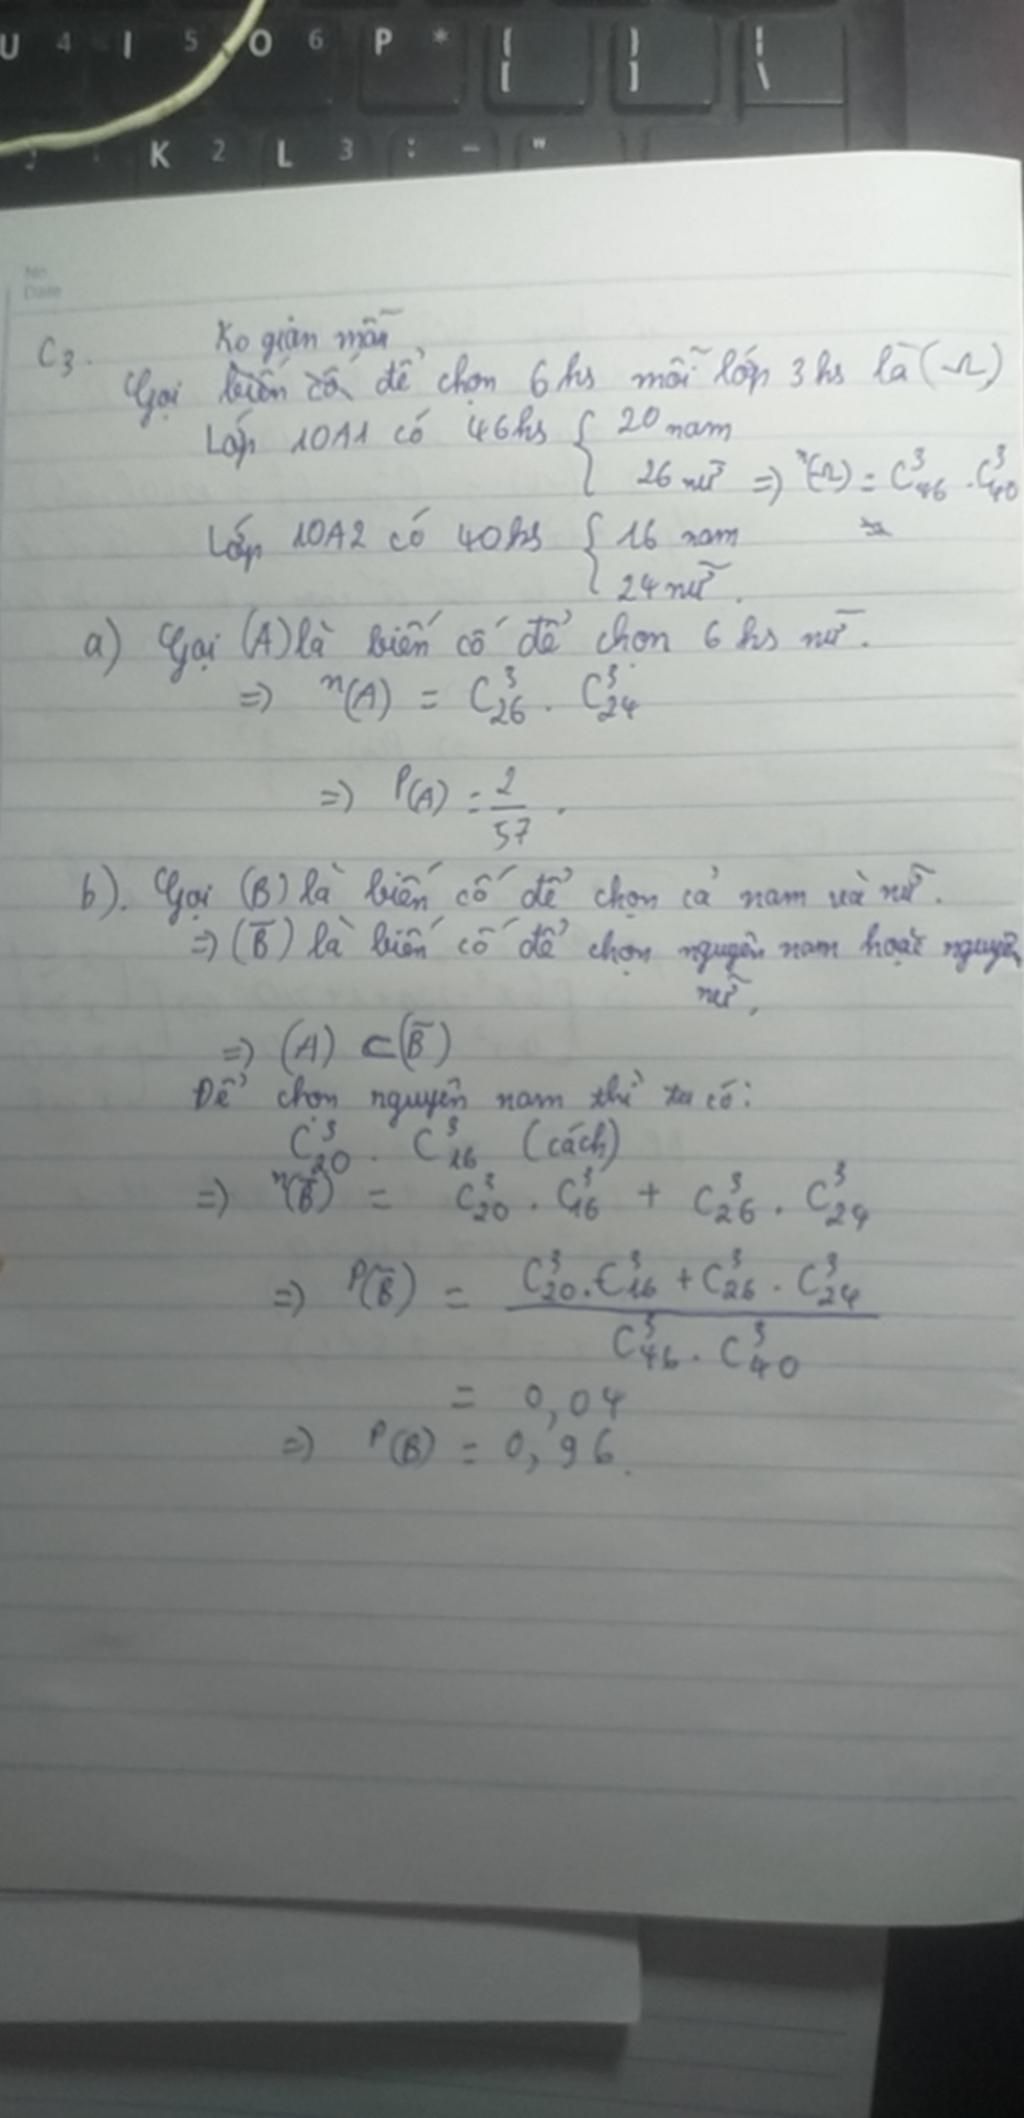 U 4 I 5 O 6 P * { [ } ] | \
K 2 L 3 : - "
No
Date
C3. Ko gian mẫu
Gọi biến cố để chọn 6 hs mỗi lớp 3 hs là (Ω)
Lớp 10A1 có 46 hs { 20 nam
26 nữ => n(Ω) = C³₄₆ . C³₄₀
Lớp 10A2 có 40 hs { 16 nam
24 nữ.
a) Gọi (A) là biến cố để chọn 6 hs nữ.
=> n(A) = C³₂₆ . C³₂₄
=> P(A) = 2/57 .
b). Gọi (B) là biến cố để chọn cả nam và nữ.
=> (B̅) là biến cố để chọn nguyên nam hoặc nguyên
nữ.
=> (A) ⊂ (B̅)
Để chọn nguyên nam thì ta có:
C³₂₀ . C³₁₆ (cách)
=> n(B̅) = C³₂₀ . C³₁₆ + C³₂₆ . C³₂₄
=> P(B̅) = (C³₂₀ . C³₁₆ + C³₂₆ . C³₂₄) / (C³₄₆ . C³₄₀)
= 0,04
=> P(B) = 0,96.